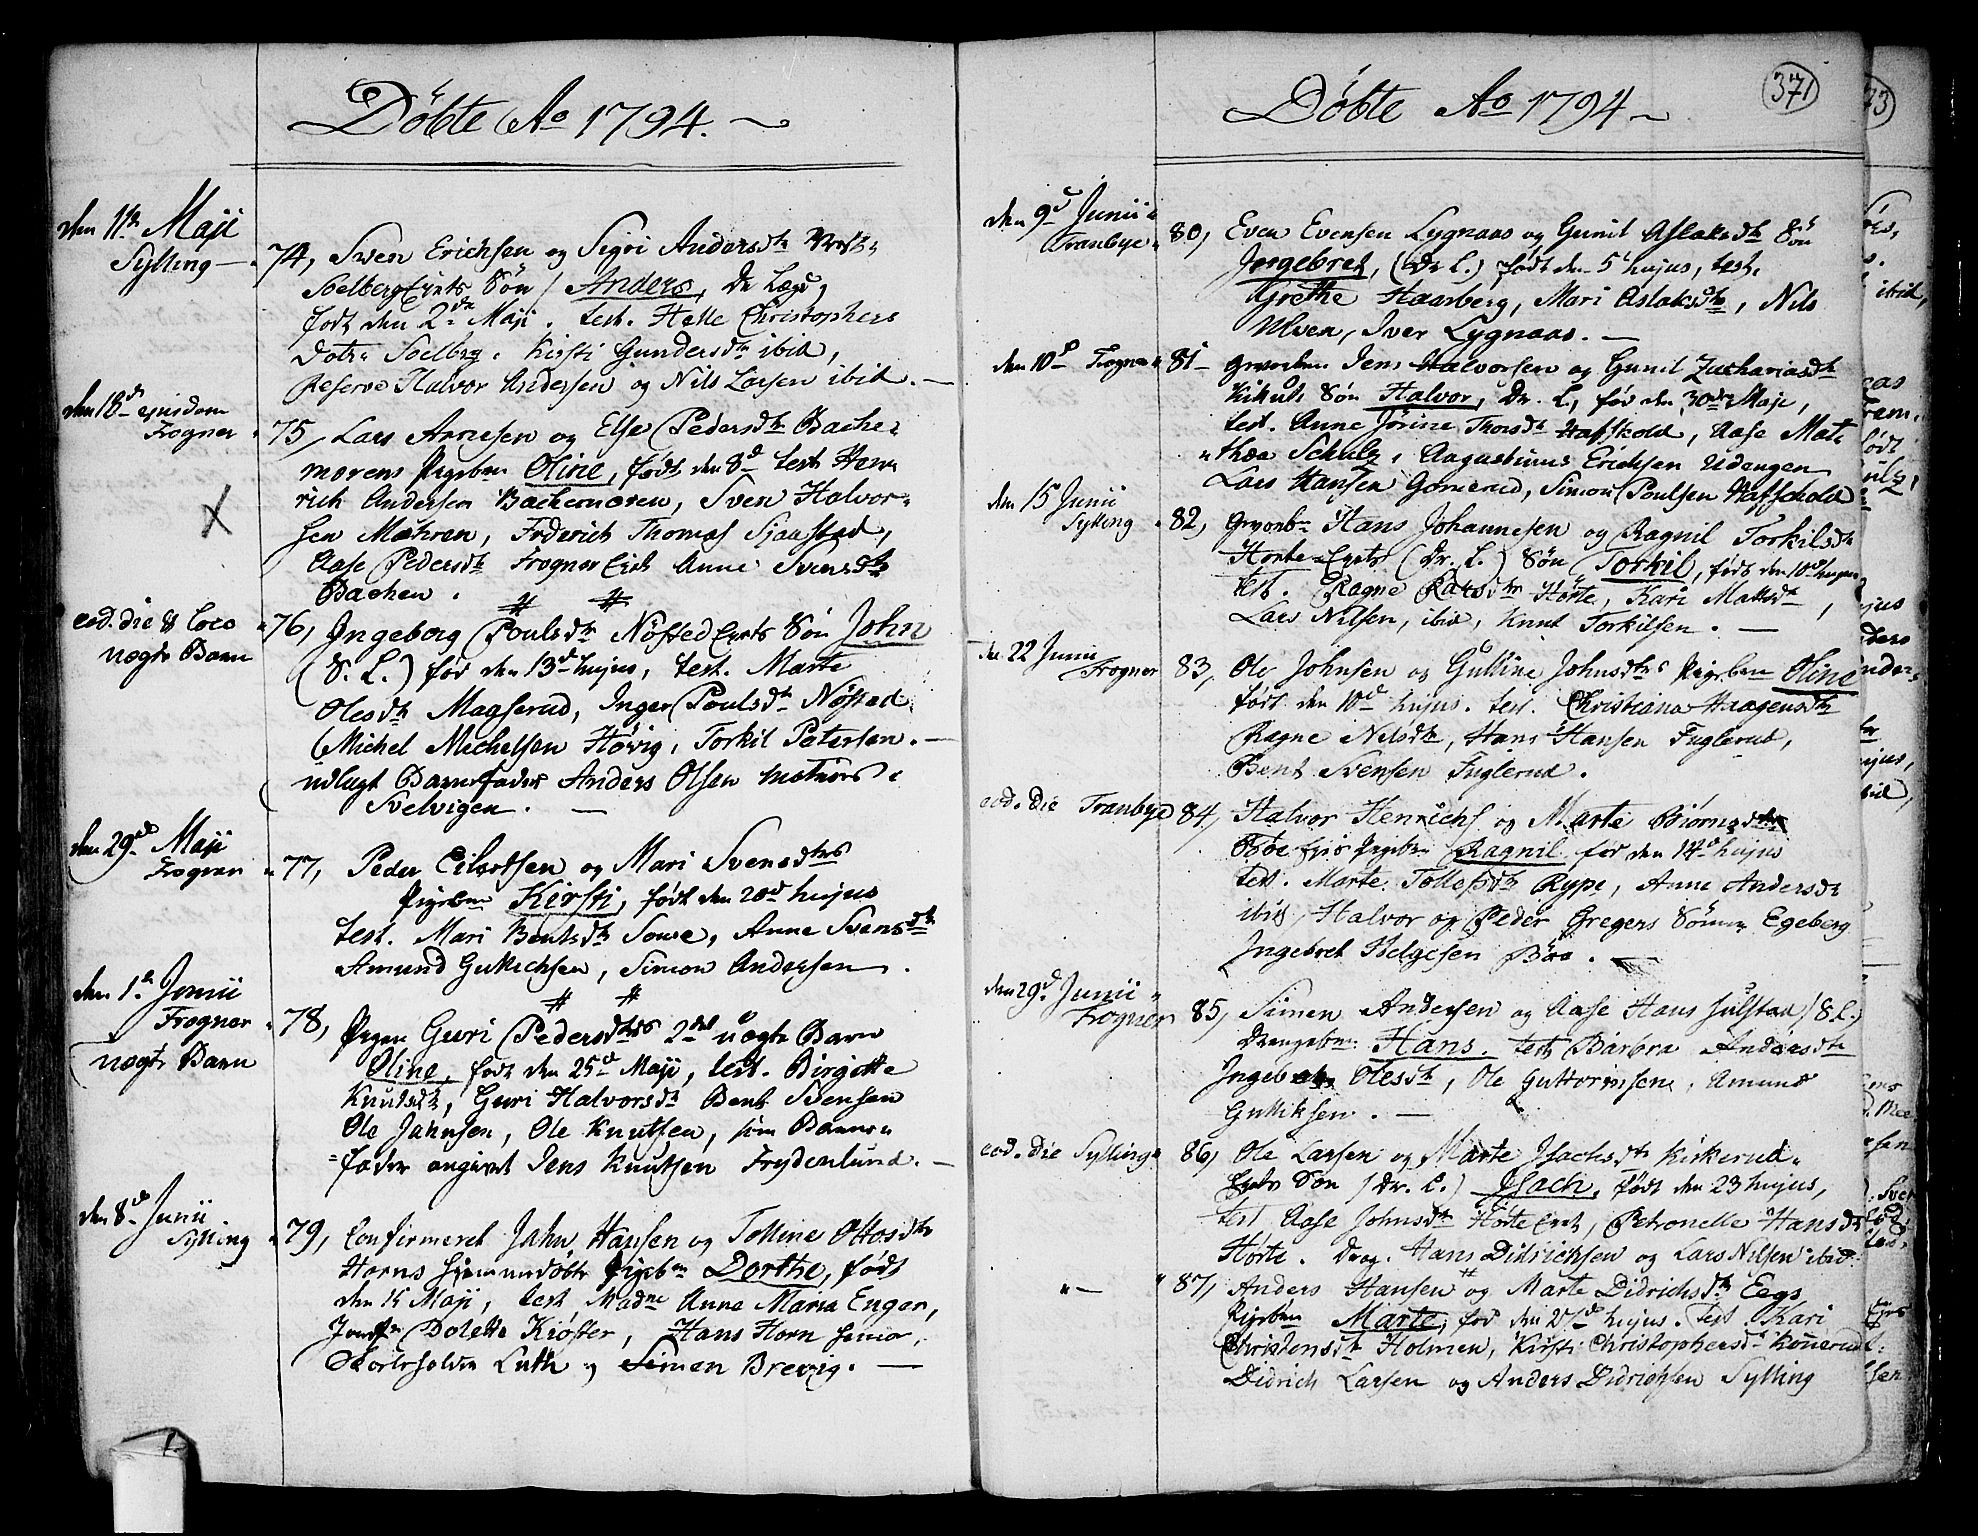 Döbte Ao 1794.
den 11te Maji
Sylling
74, Swen Erichsen og Sigri Andersdtr
Soelberg Eiets Sön / Anders, Dr Læg,
født den 2de Maji. test. Helle Christophers
Dotr Soelberg. Kirsti Gundersdtr ibid,
Reserve Halvor Andersen og Nils Larsen ibid.
den 18de ejusdem
Frogner
75, Lars Arnesen og Else Pedersdtr Bache-
morens Pigebm Oline, født den 8d test Hen-
rich Andersen Bachemoren, Sven Halvor-
sen Mæhren, Frderich Thomas Sjaastad,
Aase Pedersdtr Frogner Eiet Anne Svensdtr
Bachen.
eod. die & Loco
uægte Barn
76, Ingeborg Poulsdtr Nøsted Eyets Sön John
(S. L.) fød den 13d hujus, test. Marte
Olesdtr Magserud, Inger Poulsdtr Nøsted
Michel Michelsen Høvig, Torkil Petersen.
udlagt Barnefader Anders Olsen matros
Svelvigen.
den 29de Maji
Frogner
77, Peder Eilertsen og Mari Svensdtrs
Pigebm Kirsti, født den 20d hujus
test. Mari Bentsdtr Sowe, Anne Svensdtr
Amund Gullichsen, Simon Andersen.
den 1te Junii
Frogner
uægte Barn
78, Pigen Guri Pedersdtrs 2det uægte Barn
Oline, født den 25d Maji, test. Birgitte
Knutsdtr, Guri Halvorsdtr Bent Svensen
Ole Jahnsen, Ole Knutsen, som Barne-
fader angivet Jens Knutsen Frydenlund.
den 8de Junii
Sylling
79, Confirmeret Jahn Hansen og Tolline Ottosdtr
Horns hjemmedöbte Pigebm Dorthe, født
den 15 Maji, test Madme Anna Maria Enger,
Jomfr Dolette Kiøster, Hans Horn senior,
Luth og Simen Brevig.
Döbte Ao 1794
371
73
den 9d Junii
Tranbye
80, Even Evensen Lygnaas og Gunil Aslaksdtr Sön
Ingebret, (Dr L.) født den 5t hujus, test.
Grethe Haarberg, Mari Aslaksdtr, Nils
Ulven, Iver Lygnaas.
den 10d Frogner
81 Grvorben Jens Halvorsen og Gunil Zachariasdtr
Kikuts Sön Halvor, Dr. L, fød den 30de Maji,
test. Anne Jörine Thorsdtr Haffskold, Aase Mat-
thæa Schulz, Augustinus Erichsen Udengen
Lars Hansen Gomerud, Simon Poulsen Haffskold
den 15 Junii
Sylling
82, Grvorbn Hans Johannesen og Ragnil Torkilsdtr
Horte Eyets (Dr. L.) Sön Torkil, født den 10d hujus
test. Ragne Larsdtr Hörte, Kari Mattsdtr,
Lars Nilsen, ibid, Knut Torkilsen.
den 22 Junii
Frogner
83, Ole Johnsen og Gulline Johnsdtrs Pigebm Oline
født den 10d hujus. test. Christiana Haagensdtr
Ragne Nilsdtr, Hans Hansen Fuglerud,
Bent Svensen Fuglerud.
eod. die Tranbye
84, Halvor Henrichs og Marte Biörnsdtr
Böe Ejes Pigebm Ragnil fød den 14d hujus
test. Marte Tollefsdtr Rype, Anne Andersdtr
ibid, Halvor og Peder Gregers Sönner Egeberg
Ingebret Helgesen Böe.
den 29d Junii
Frogner
85, Simen Andersen og Aase Hans Julstad / S.L.)
Drengebm: Hans. test Barbra Andersdtr
Ingeborg Olesdtr, Ole Guttormsen, Amund
Gulliksen.
eod. die Sylling
86, Ole Larsen og Marte Isachsdtr Kirkerud
Eyets Sön / Dr. L.) Isach, født den 23 hujus,
test Aase Johnsdtr Hörte Eiet, Petronelle Hansdtr
Hörte. Drag. Hans Didrichsen og Lars Nilsen ibid.
87, Anders Hansen og Marte Didrichsdtr Eegs
Pigebm Marte, fød den 27d hujus. Test. Kari
Christensdtr Holmen, Kirsti Christophersdtr Kønerud
Didrich Larsen og Anders Didrichsen Sylling